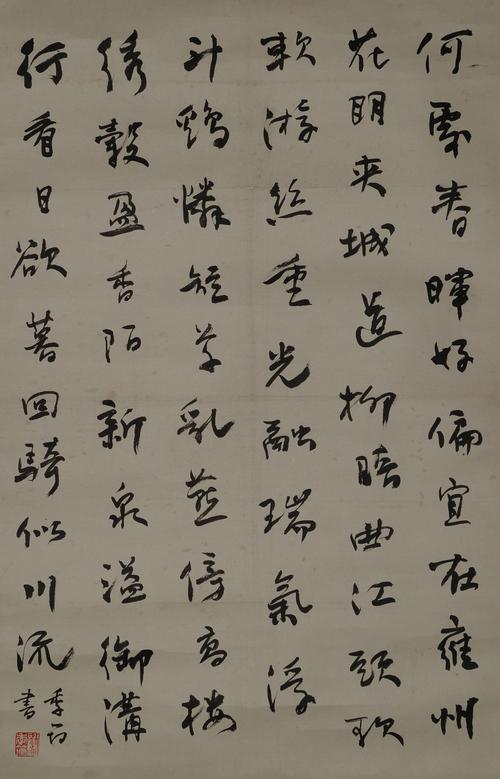 何處春暉好偏宜在雍州
花明夾城道柳暗曲江頭
軟游絲重光融瑞氣浮
斗鷄憐短草乳燕傍高樓
綉轂盈香陌新泉溢御溝
行看日欲暮回騎似川流
季
書